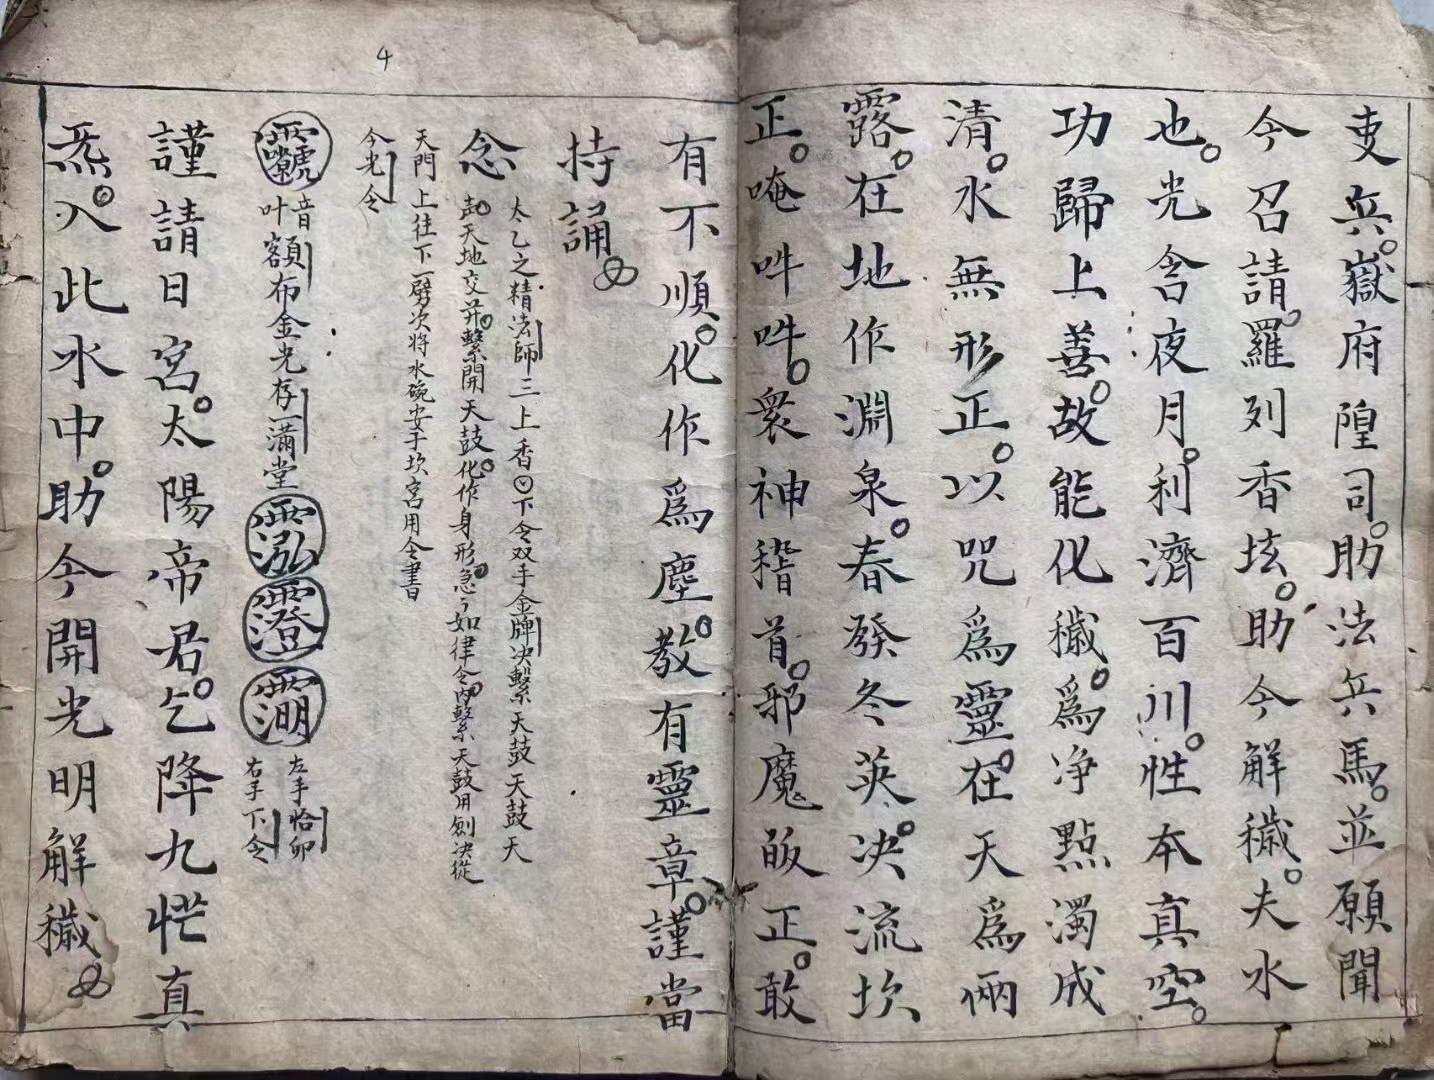 吏兵。嶽府隍司。助法兵馬。並願聞
今召請。羅列香坛。助今解穢。夫水
也。光含夜月。利濟百川。性本真空。
功歸上善。故能化穢。爲净點濁成
清。水無形正。以咒爲靈。在天爲俩
露。在地作淵泉。春發冬英。决流坎
正。唵吽吽。衆神稽首。邪魔皈正。敢
有不順。化作爲塵。教有靈章。謹當
持誦。
太乙之精法師三上香下令双手金牌决繫天鼓天鼓天
念
天地交并。繫開天鼓。化作身形。急〻如律令。內繫天鼓用劍决從
天門上往下一劈次将水碗安于坎宮用全書
今光令
音
叶額布金光存一滿堂
左手恰卯
右手下令
謹請日宮。太陽帝君。乞降九恾真
炁。入此水中。助今開光明解穢
4